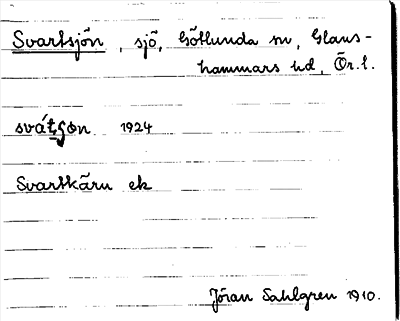 Svartsjön, sjö, Götlunda sn, Glans-
hammars hd, Ör. l.
svátʂøn 1924
Svartkäru ek
Jöran Sahlgren 1910.